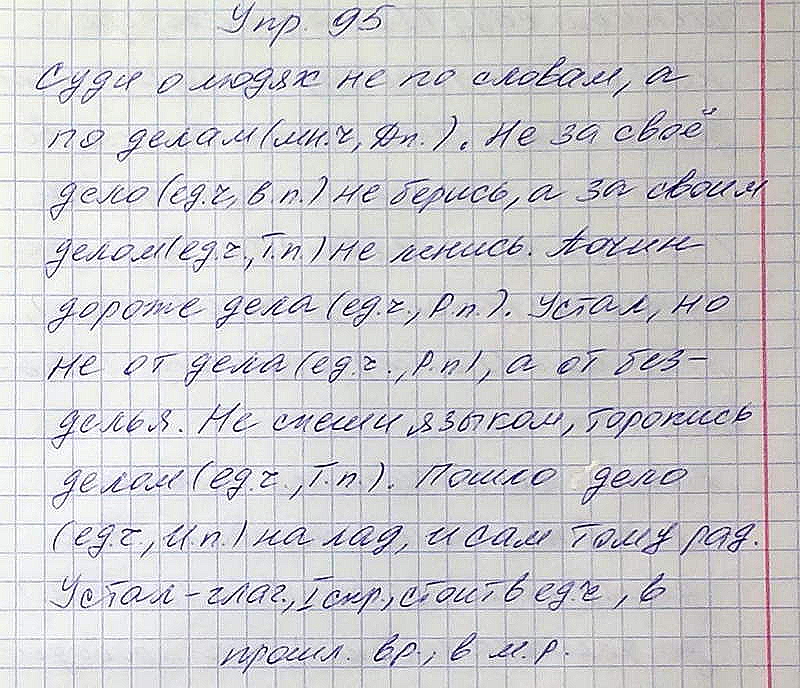 Упр. 95
Суди о людях не по словам, а
по делам (мн.ч, Дп.). Не за своё
дело (ед.ч, в.п.) не берись, а за своим
делом (ед.ч., Т.п.) не ленись. Почин
дороже дела (ед.ч., Р.п.). Устал, но
не от дела (ед.ч., Р.п), а от без-
делья. Не спеши языком, торопись
делом (ед.ч., Т.п.). Пошло дело
(ед.ч., И.п.) на лад, и сам тому рад.
Устал – глаг., I спр., стоит в ед.ч, в
прошл. вр., в м.р.